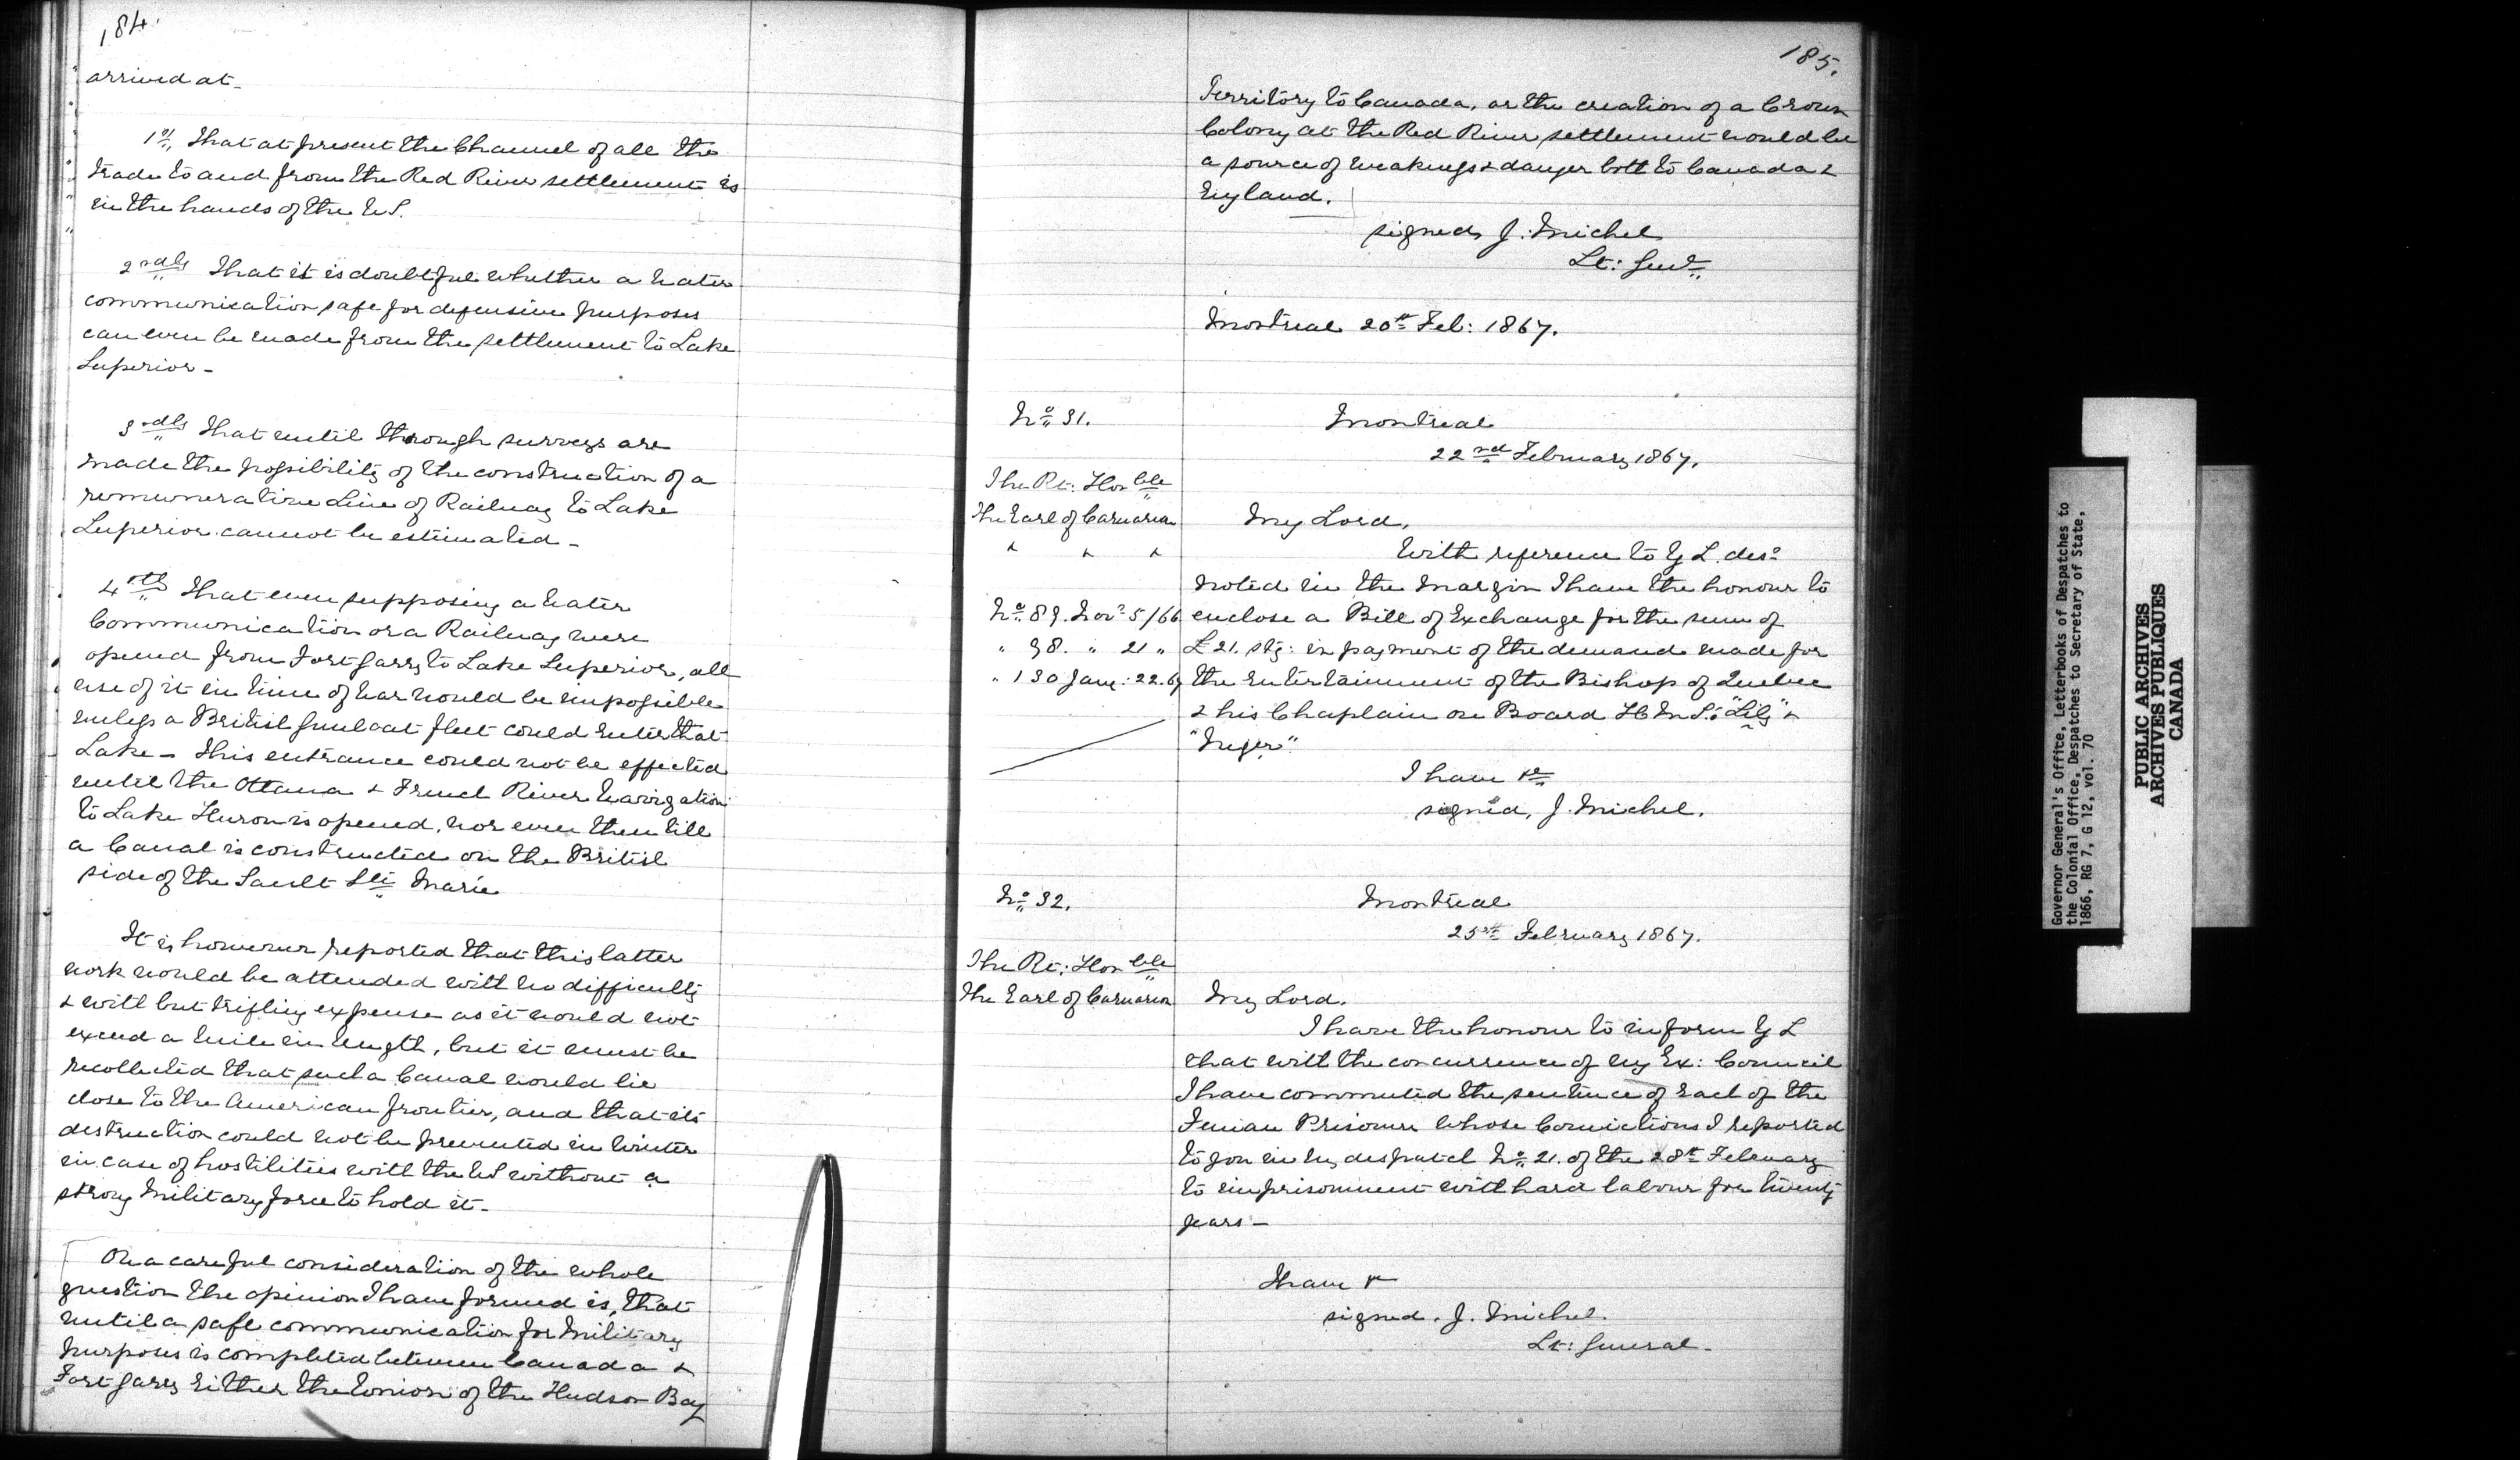 184.
arrived at_
1st, That at present the Channel of all the
trade to and from the Red River settlement is
in the hands of the US.
2ndly That it is doubtful whether a water
communication safe for defensive purposes
can even be made from the settlement to Lake
Superior -
3rdly That until through surveys are
made the possibility of the construction of a
remunerative Line of Railway to Lake
Superior cannot be estimated -
4thly That even supposing a water
Communication or a Railway were
opened from Fort Garry to Lake Superior, all
use of it in time of war would be impossible
unless a British Gunboat fleet could enter that
Lake - This entrance could not be effected
until the Ottawa & French River Navigation
to Lake Huron is opened, nor even then till
a Canal is constructed on the British
side of the Sault Ste Marie
It is however reported that this latter
work would be attended with no difficulty
& with but trifling expense as it would not
exceed a mile in length, but it must be
recollected that such a Canal would lie
close to the American frontier, and that its
destruction could not be prevented in Winter
in case of hostilities with the US without a
strong Military force to hold it -
On a careful consideration of the whole
question the opinion I have formed is, that
until a safe communication for Military
purposes is completed between Canada &
Fort Garry either the Union of the Hudson Bay
185.
Territory to Canada, or the creation of a Crown
Colony at the Red River settlement would be
a source of weakness & danger both to Canada &
England.
signed J. Michel
Lt: Genl.
Montreal 20th Feb: 1867.
No 31.
Montreal
22nd February 1867.
The Rt: Honble
The Earl of Carnarvon
My Lord,
With reference to Y L. deso
noted in the Margin I have the honour to
No 89. Novr 5/66
enclose a Bill of Exchange for the sum of
" 98. " 21 "
£21. stg: in payment of the demand made for
" 130 Jany: 22.67
the entertainment of the Bishop of Quebec
& his Chaplain on Board H M S: "Lily" &
"Niger".
I have &c
signed, J. Michel.
No 32.
Montreal
25th February 1867.
The Rt: Honble
The Earl of Carnarvon
My Lord.
I have the honour to inform Y L
that with the concurrence of my Ex: Council
I have commuted the sentence of each of the
Fenian Prisoners whose Convictions I reported
to you in my despatch No 21. of the 28th February
to imprisonment with hard labour for twenty
years -
I have &c
signed. J. Michel.
Lt: General -
Governor General's Office, Letterbooks of Despatches to
the Colonial Office, Despatches to Secretary of State,
1866, RG 7, G 12, vol. 70
PUBLIC ARCHIVES
ARCHIVES PUBLIQUES
CANADA